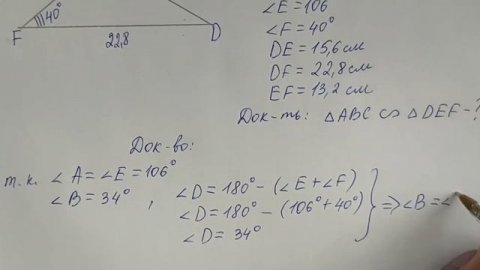 40°
F 22,8 D
∠E = 106
∠F = 40°
DE = 15,6 см
DF = 22,8 см
EF = 13,2 см
Док-ть: △ABC ∽ △DEF - ?
Док-во:
т.к. ∠A = ∠E = 106°
∠B = 34° , ∠D = 180° - (∠E + ∠F)
∠D = 180° - (106° + 40°) } ⇒ ∠B = ∠
∠D = 34°